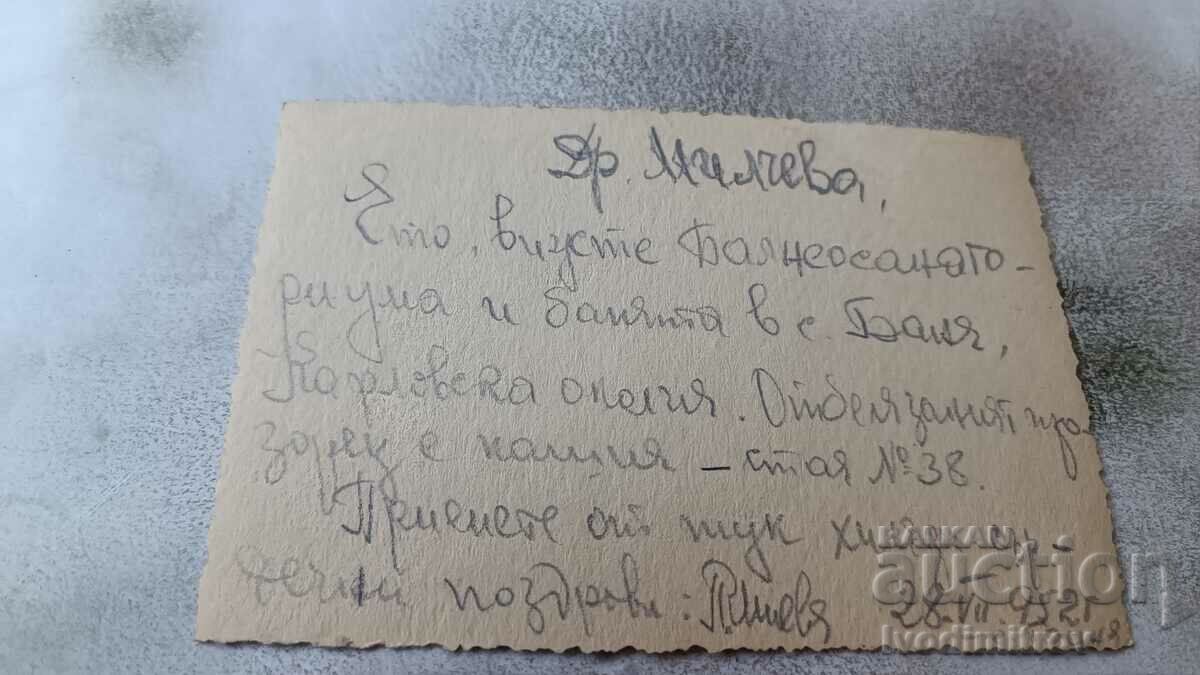 Др. Милчева,
Ето, вижте Балнеосанато-
риума и банята в с. Баня,
Карловска околия. Отбелязаният про-
зорец е нашия – стая № 38.
Приемете от тук хиляди сър-
дечни поздрави: 28.VII.952г
auction
Ivodimitrov